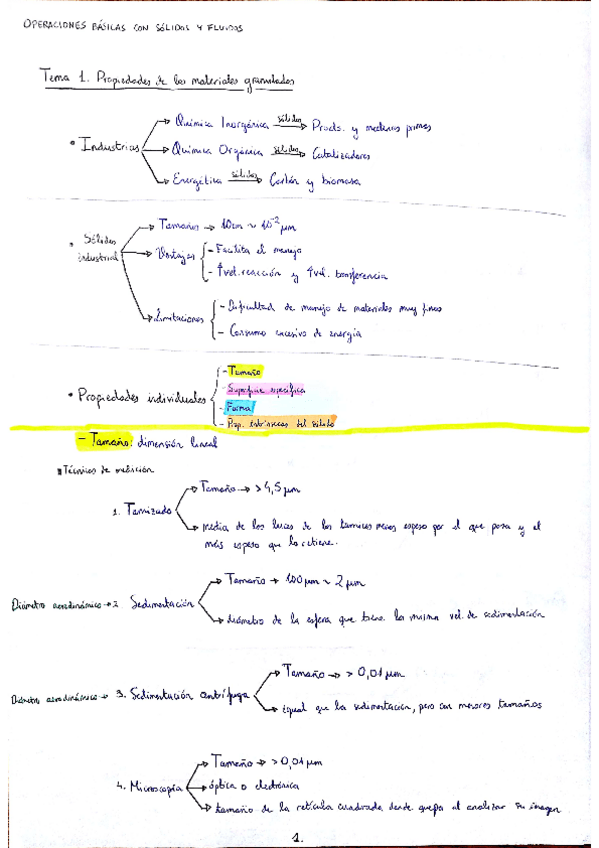 OPERACIONES BÁSICAS CON SÓLIDOS Y FLUIDOS
Tema 1. Propiedades de los materiales granulados
• Industrias
→ Química Inorgánica sólidos → Prods. y materias primas
→ Química Orgánica sólidos → Catalizadores
→ Energética sólidos → Carbón y biomasa
• Sólidos industrial
→ Tamaño → 10cm ~ 10⁻² μm
→ Ventajas
- Facilita el manejo
- ↑vel. reacción y ↑vel. transferencia
→ Limitaciones
- Dificultad de manejo de materiales muy finos
- Consumo excesivo de energía
• Propiedades individuales
- Tamaño
- Superficie específica
- Forma
- Prop. intrínsecas del sólido
- Tamaño: dimensión lineal
Técnicas de medición
1. Tamizado
→ Tamaño → > 4,5 μm
→ media de las luces de los tamices menos espeso por el que pasa y el
más espeso que lo retiene.
Diámetro aerodinámico → 2. Sedimentación
→ Tamaño → 100 μm ~ 2 μm
→ diámetro de la esfera que tiene la misma vel. de sedimentación
Diámetro aerodinámico → 3. Sedimentación centrífuga
→ Tamaño → > 0,01 μm
→ igual que la sedimentación, pero con menores tamaños
4. Microscopía
→ Tamaño → > 0,01 μm
→ óptica o electrónica
→ tamaño de la retícula cuadrada donde quepa al analizar su imagen
1.